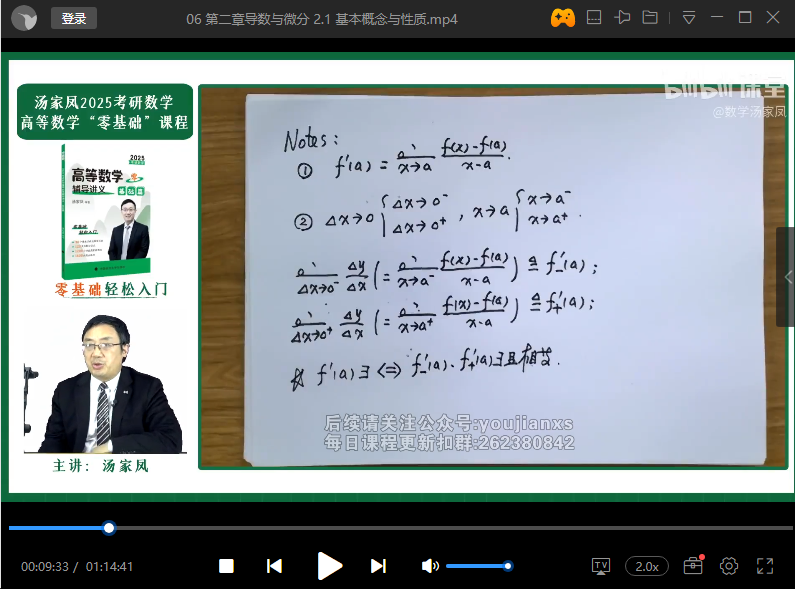 登录
06 第二章导数与微分 2.1 基本概念与性质.mp4
汤家凤2025考研数学
高等数学“零基础”课程
2025
高等数学
辅导讲义
零基础
零基础轻松入门
主讲：汤家凤
bilibili课堂
@数学汤家凤
Notes:
① f'(a) = lim x→a f(x)-f(a) / x-a.
② Δx→0 { Δx→0⁻ Δx→0⁺ , x→a { x→a⁻ x→a⁺ .
lim Δx→0⁻ Δy/Δx ( = lim x→a⁻ f(x)-f(a) / x-a ) ≜ f'₋(a) ;
lim Δx→0⁺ Δy/Δx ( = lim x→a⁺ f(x)-f(a) / x-a ) ≜ f'₊(a) ;
f'(a)∃ ⇔ f'₋(a)、f'₊(a)∃且相等.
后续请关注公众号:youjianxs
每日课程更新扣群:262380842
00:09:33 / 01:14:41
TV
2.0x